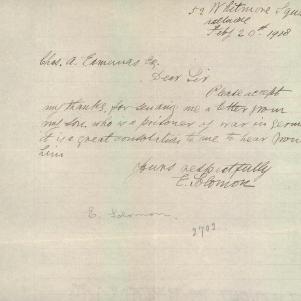 52 Whitmore Squ
Adelaide
Feb 20th 1918
Chas. A. Edmunds Esq.
Dear Sir
Please accept
my thanks for sending me a letter from
my son, who was a prisoner of war in Germ
it is a great consolation to me to hear from
him
Yours respectfully
E. Solomon
E. Solomon.
2702